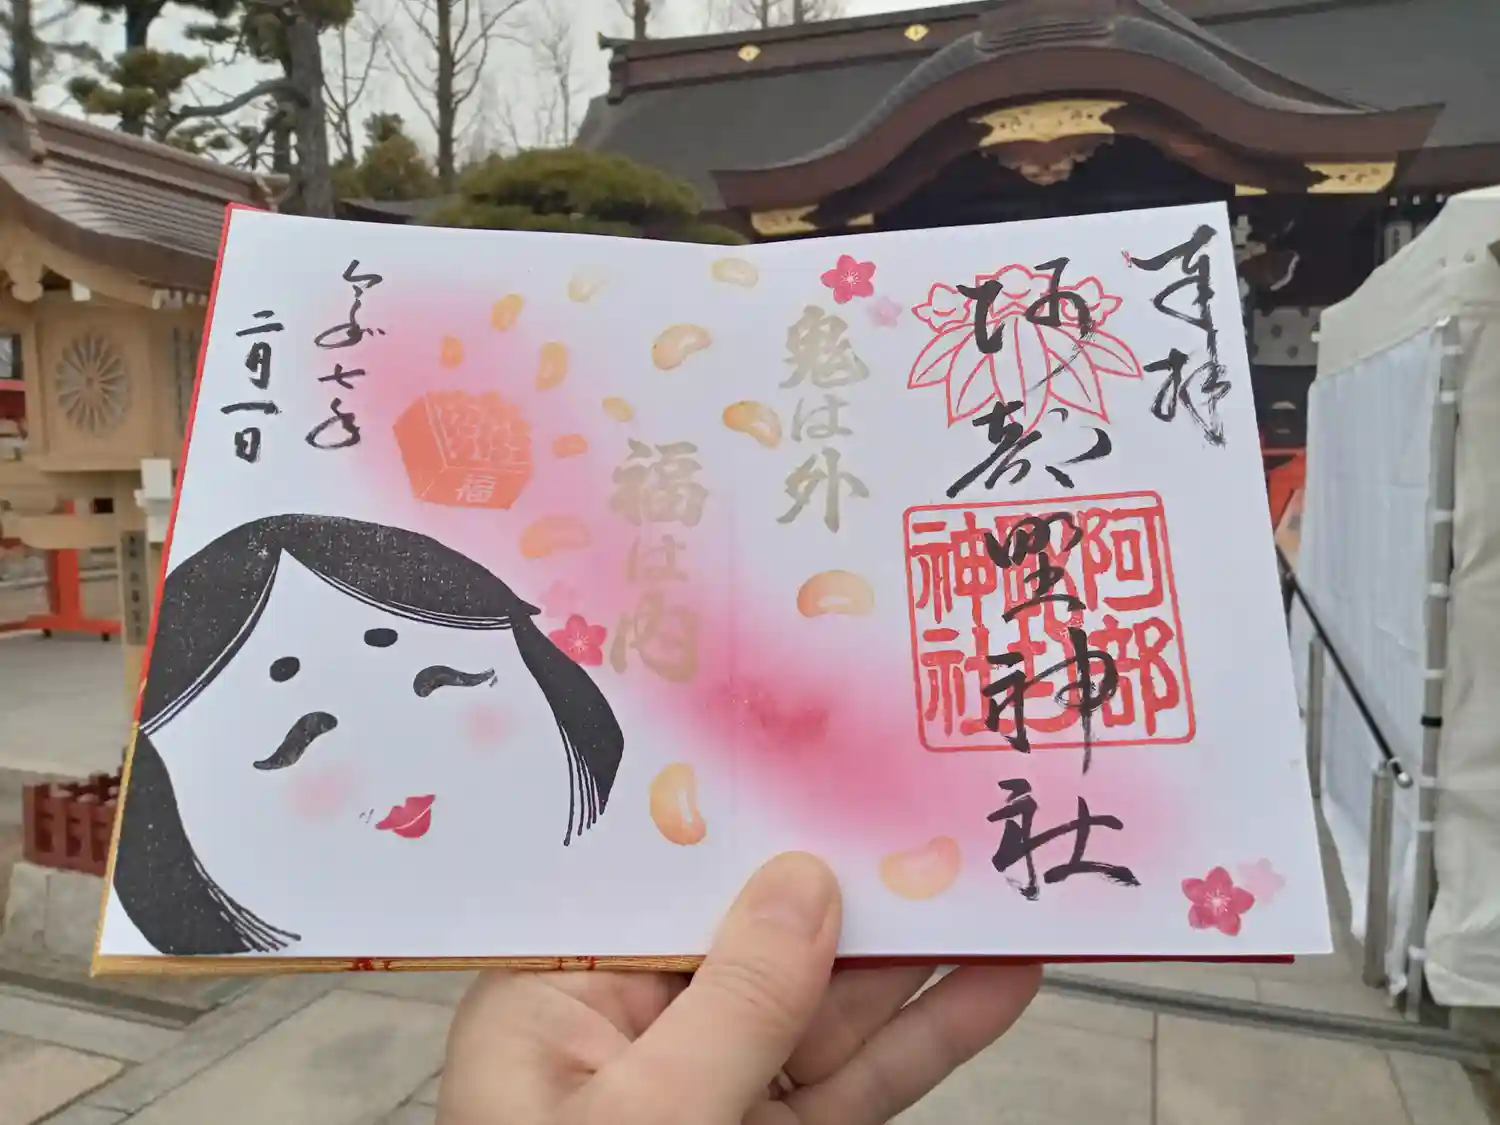 奉拝
阿部野神社
阿部
野神社
鬼は外
福は内
福
令和七年
二月一日